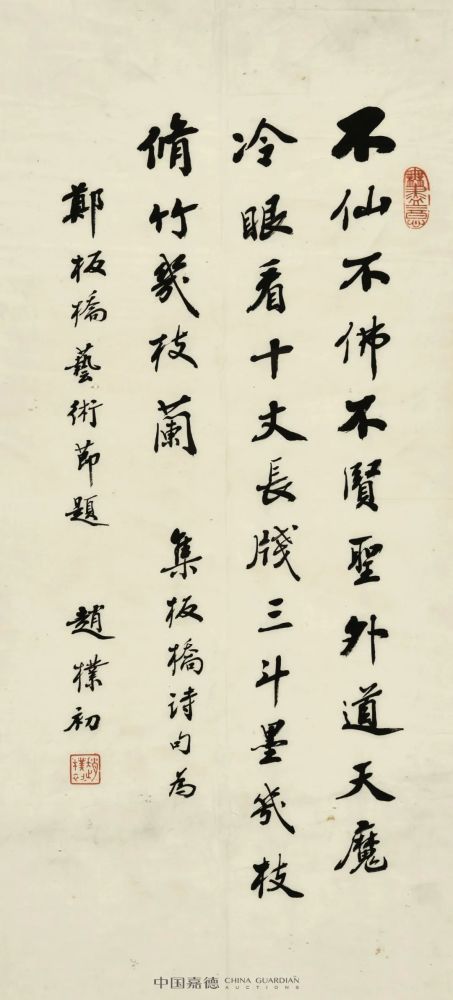 無盡意
不仙不佛不賢聖外道天魔
冷眼看十丈長牋三斗墨幾枝
脩竹幾枝蘭 集板橋詩句為
鄭板橋藝術節題 趙樸初
趙樸初
中国嘉德 CHINA GUARDIAN AUCTIONS